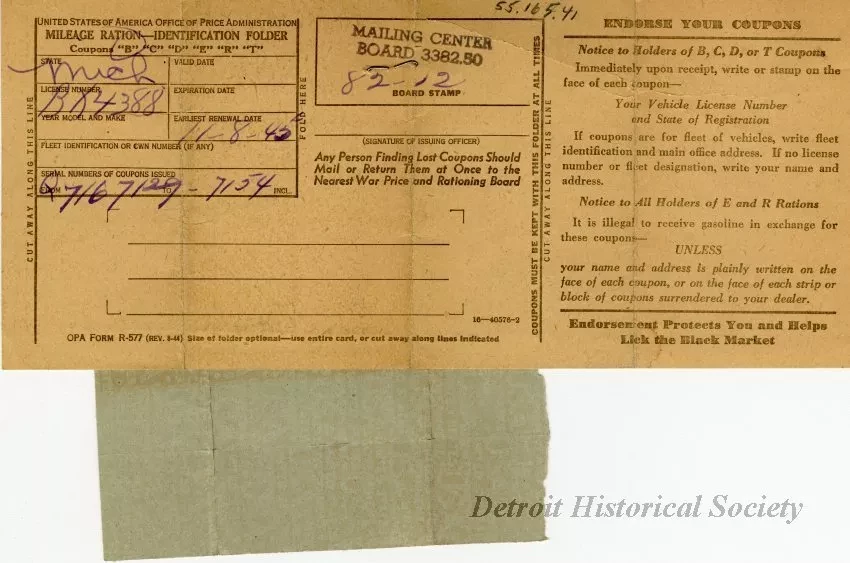 55.165.41
UNITED STATES OF AMERICA OFFICE OF PRICE ADMINISTRATION
MILEAGE RATION—IDENTIFICATION FOLDER
Coupons "B" "C" "D" "E" "R" "T"
STATE
Mich
VALID DATE
LICENSE NUMBER
BR4388
EXPIRATION DATE
YEAR MODEL AND MAKE
EARLIEST RENEWAL DATE
11-8-45
FLEET IDENTIFICATION OR OWN NUMBER (IF ANY)
SERIAL NUMBERS OF COUPONS ISSUED
FROM 716 7129 - 7154 INCL.
CUT AWAY ALONG THIS LINE
FOLD HERE
MAILING CENTER
BOARD 3382.50
82-12
BOARD STAMP
(SIGNATURE OF ISSUING OFFICER)
Any Person Finding Lost Coupons Should
Mail or Return Them at Once to the
Nearest War Price and Rationing Board
16—40576-2
OPA FORM R-577 (REV. 8-44) Size of folder optional—use entire card, or cut away along lines indicated
COUPONS MUST BE KEPT WITH THIS FOLDER AT ALL TIMES
CUT AWAY ALONG THIS LINE
ENDORSE YOUR COUPONS
Notice to Holders of B, C, D, or T Coupons
Immediately upon receipt, write or stamp on the
face of each coupon—
Your Vehicle License Number
and State of Registration
If coupons are for fleet of vehicles, write fleet
identification and main office address. If no license
number or fleet designation, write your name and
address.
Notice to All Holders of E and R Rations
It is illegal to receive gasoline in exchange for
these coupons—
UNLESS
your name and address is plainly written on the
face of each coupon, or on the face of each strip or
block of coupons surrendered to your dealer.
Endorsement Protects You and Helps
Lick the Black Market
Detroit Historical Society